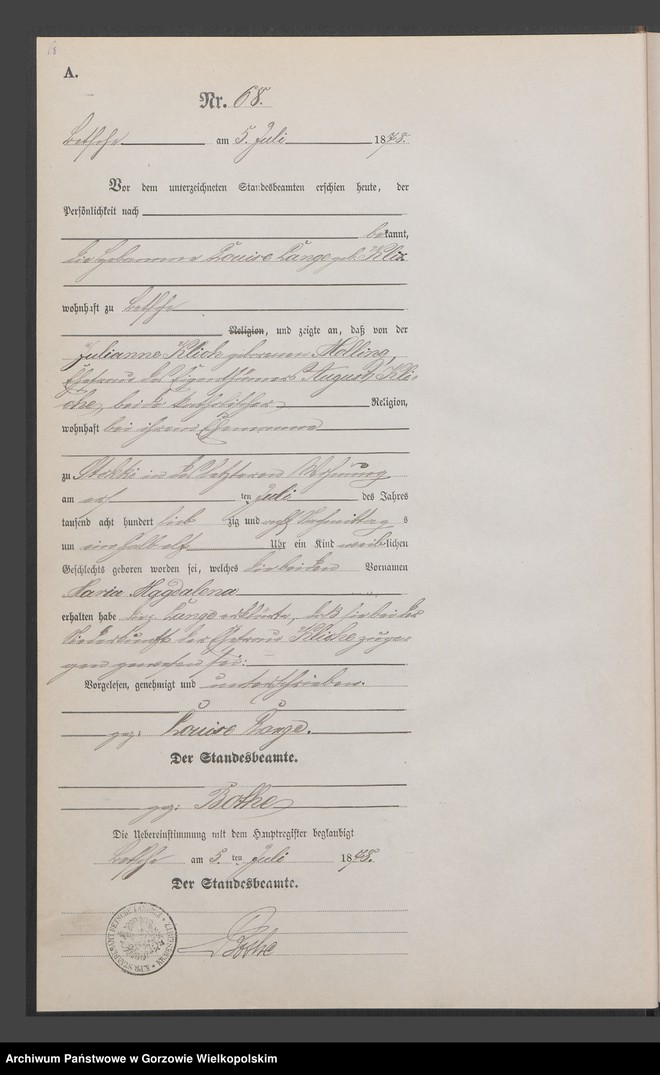 A.
Nr. 68.
Betsche am 5. Juli 1878.
Vor dem unterzeichneten Standesbeamten erschien heute, der
Persönlichkeit nach
bekannt,
die Hebamme Louise Lange geb. Klix
wohnhaft zu Betsche
Religion, und zeigte an, daß von der
Julianne Kliche geborenen Molling,
Ehefrau des Eigenthümers August Kli-
che, beide katholischer Religion,
wohnhaft bei ihrem Ehemanne
zu in des letzteren Wohnung
am ten Juli des Jahres
tausend acht hundert sieb zig und acht Vormittag s
um einhalb elf Uhr ein Kind weiblichen
Geschlechts geboren worden sei, welches die beiden Vornamen
Maria Magdalena
erhalten habe die p. Lange erklärte, daß sie bei der
Niederkunft der Ehefrau Kliche zuge-
gen gewesen sei.
Vorgelesen, genehmigt und unterschrieben.
gez: Louise Lange.
Der Standesbeamte.
gez: Bothe
Die Uebereinstimmung mit dem Hauptregister beglaubigt
Betsche am 5. ten Juli 1878.
Der Standesbeamte.
Bothe
Archiwum Państwowe w Gorzowie Wielkopolskim